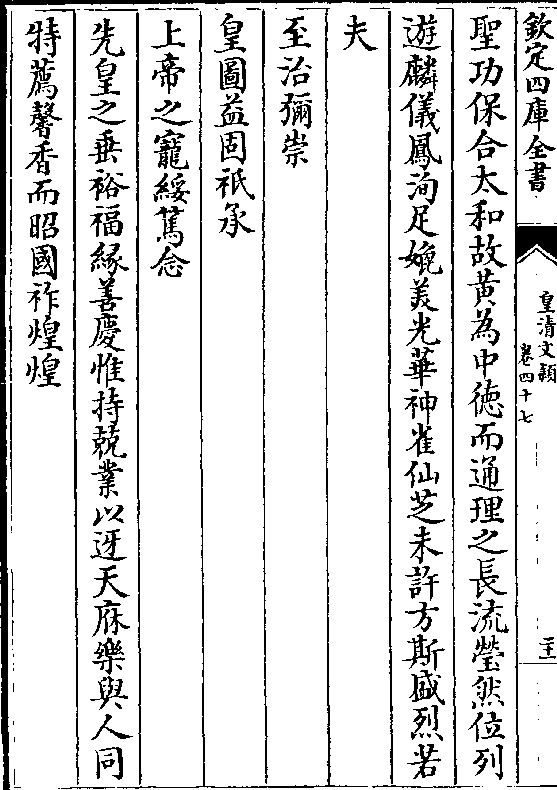 欽定四庫全書
皇清文穎
卷四十七
二十
聖功保合太和故黃為中德而通理之長流瑩然位列
遊麟儀鳳洵足媲美光華神雀仙芝未許方斯盛烈若
夫
至治彌崇
皇圖益固祇承
上帝之寵綏篤念
先皇之垂裕福緣善慶惟持兢業以迓天庥樂與人同
特薦馨香而昭國祚煌煌